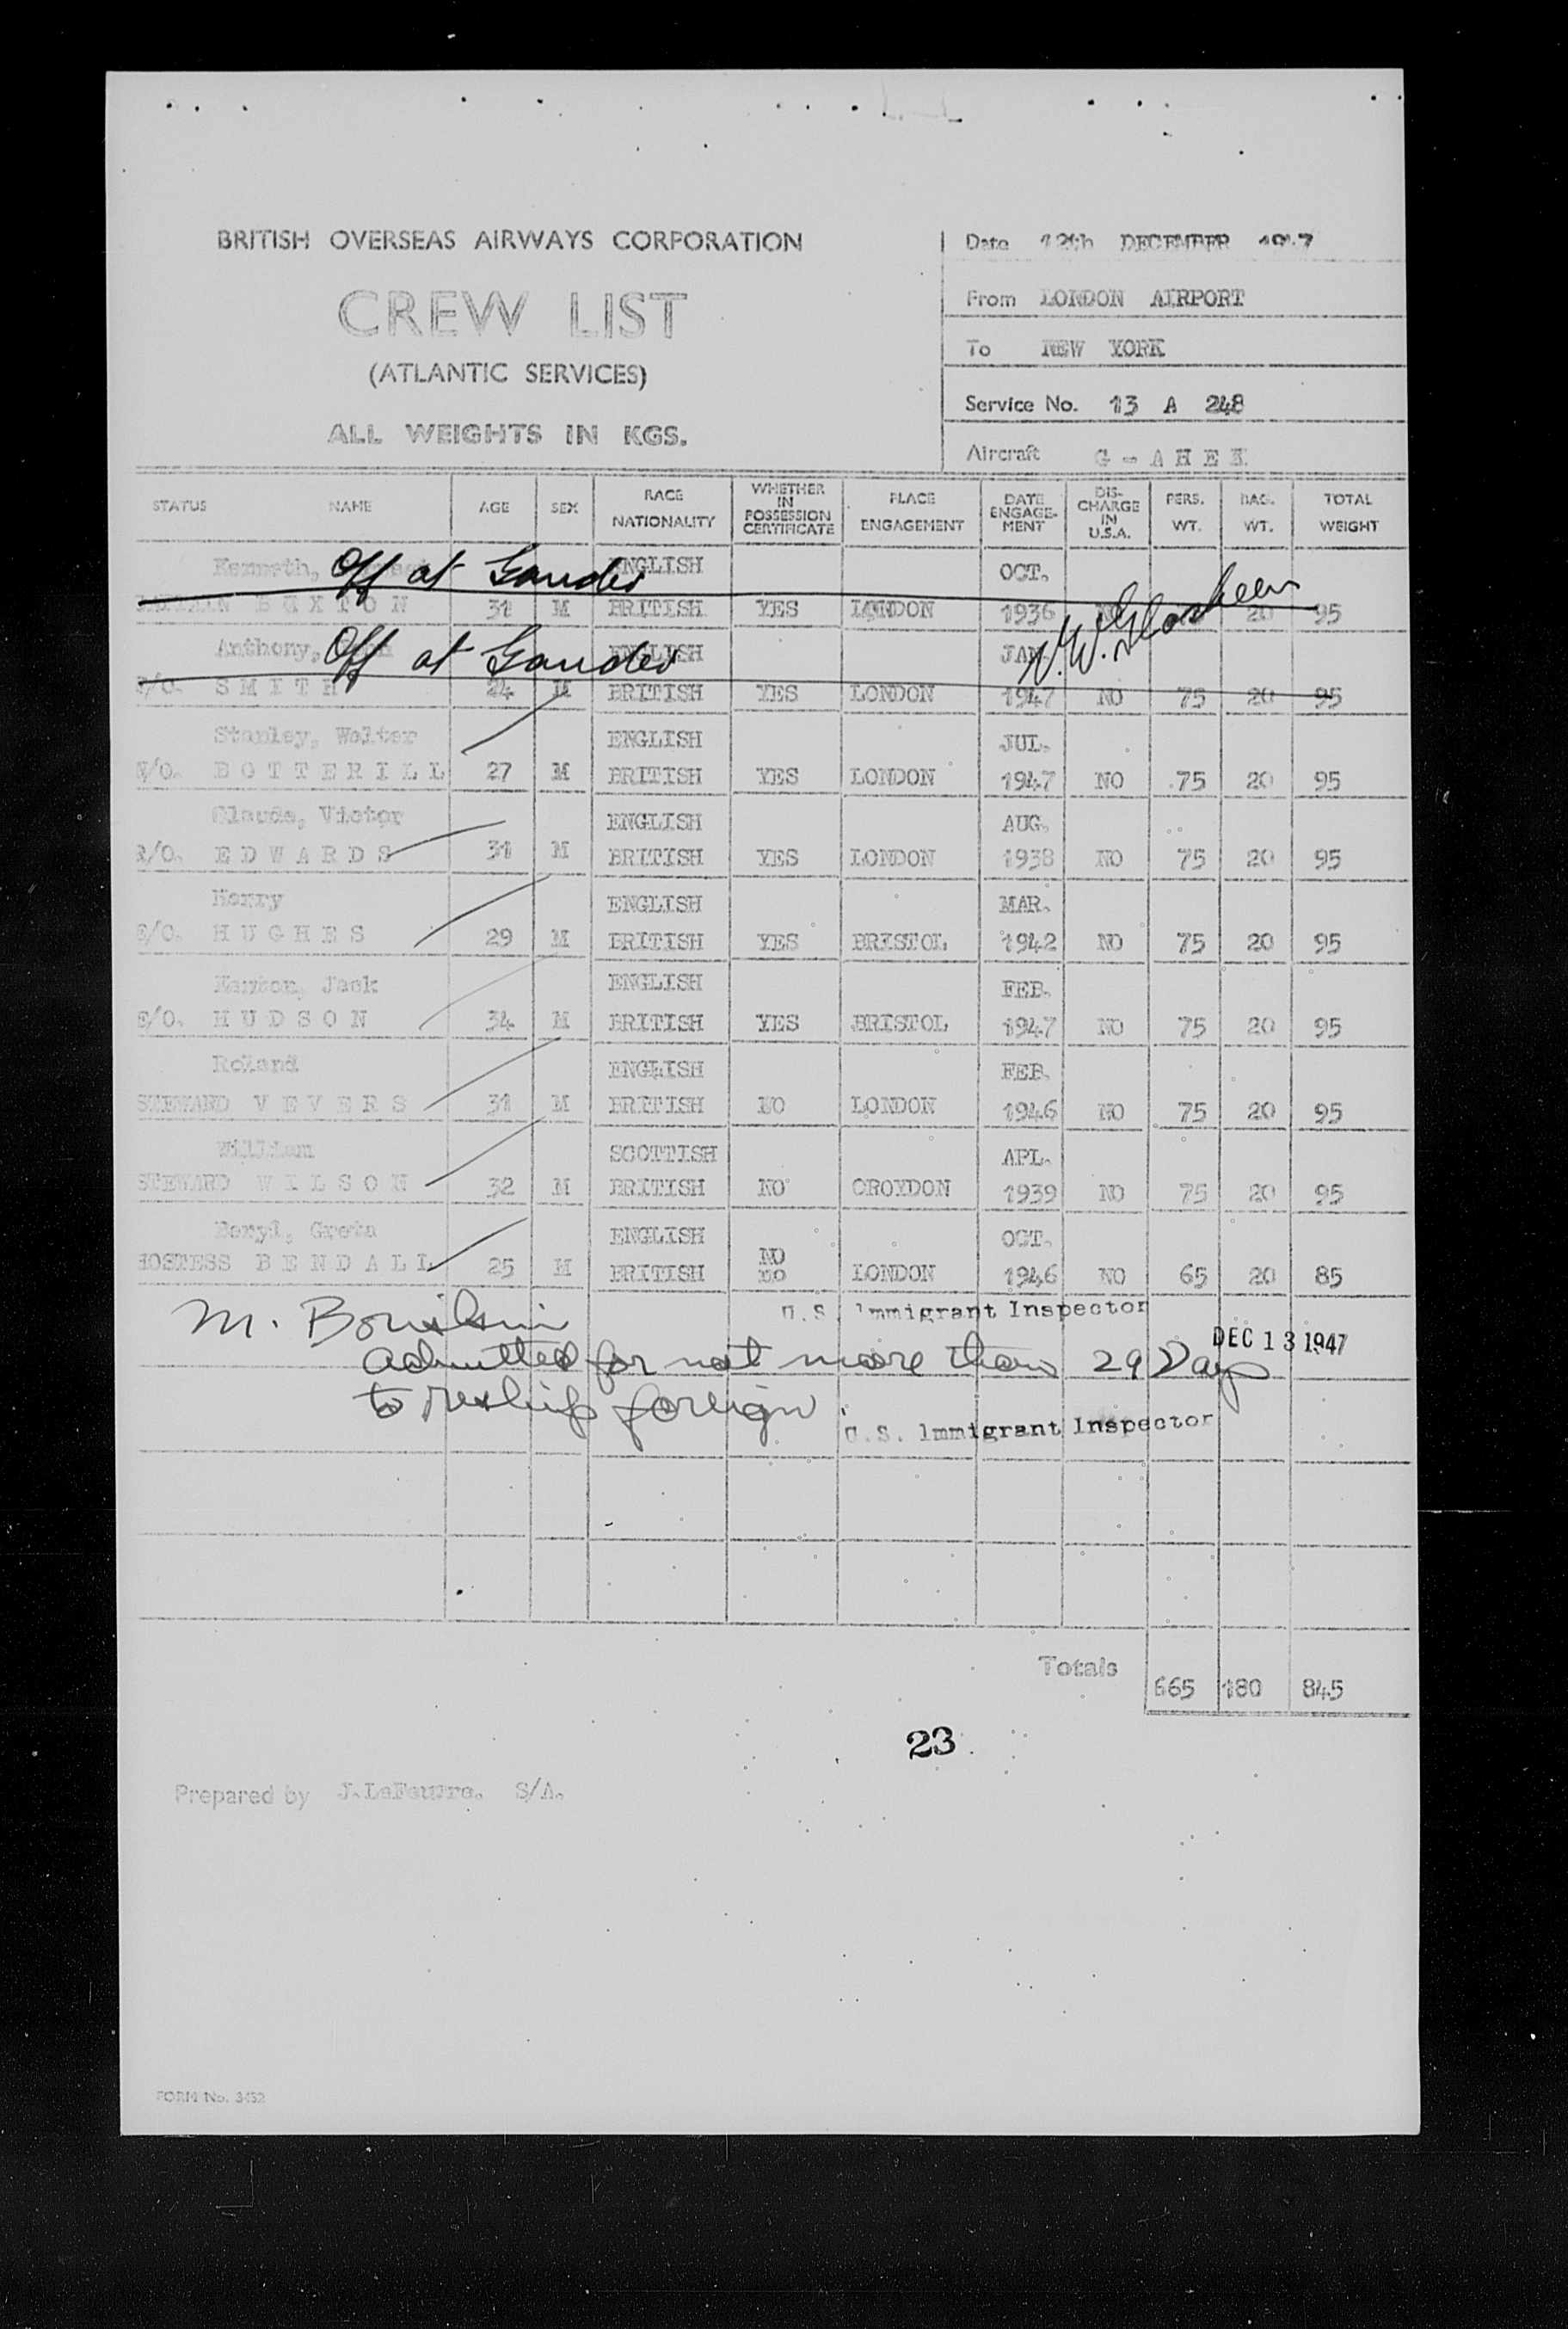 BRITISH OVERSEAS AIRWAYS CORPORATION
CREW LIST
(ATLANTIC SERVICES)
ALL WEIGHTS IN KGS.
Date 12th DECEMBER 1947
From LONDON AIRPORT
To NEW YORK
Service No. 13 A 248
Aircraft G - A H E K
STATUS NAME AGE SEX RACE NATIONALITY WHETHER IN POSSESSION CERTIFICATE PLACE ENGAGEMENT DATE ENGAGE-MENT DIS-CHARGE IN U.S.A. PERS. WT. BAG. WT. TOTAL WEIGHT
Kenneth, Off at Gander ENGLISH OCT.
B U X T O N 31 M BRITISH YES LONDON 1936 20 95
Anthony, Off at Gander ENGLISH JAN.
S M I T H 24 M BRITISH YES LONDON 1947 NO 75 20 95
Stanley, Walter ENGLISH JUL.
N/O. B O T T E R I L L 27 M BRITISH YES LONDON 1947 NO 75 20 95
Claude, Victor ENGLISH AUG.
R/O. E D W A R D S 31 M BRITISH YES LONDON 1938 NO 75 20 95
Henry ENGLISH MAR.
E/O. H U G H E S 29 M BRITISH YES BRISTOL 1942 NO 75 20 95
Jack ENGLISH FEB.
E/O. H U D S O N 34 M BRITISH YES BRISTOL 1947 NO 75 20 95
Roland ENGLISH FEB.
STEWARD V E V E R S 31 M BRITISH NO LONDON 1946 NO 75 20 95
William SCOTTISH APL.
STEWARD W I L S O N 32 M BRITISH NO CROYDON 1939 NO 75 20 95
Beryl, Greta ENGLISH OCT.
NO
HOSTESS B E N D A L L 25 M BRITISH NO LONDON 1946 NO 65 20 85
M. U.S. Immigrant Inspector
DEC 13 1947
admitted for not more than 29 Days
to reship foreign
U.S. Immigrant Inspector
Totals 665 180 845
23
Prepared by J.LeFeuvre. S/A.
FORM No. 3432